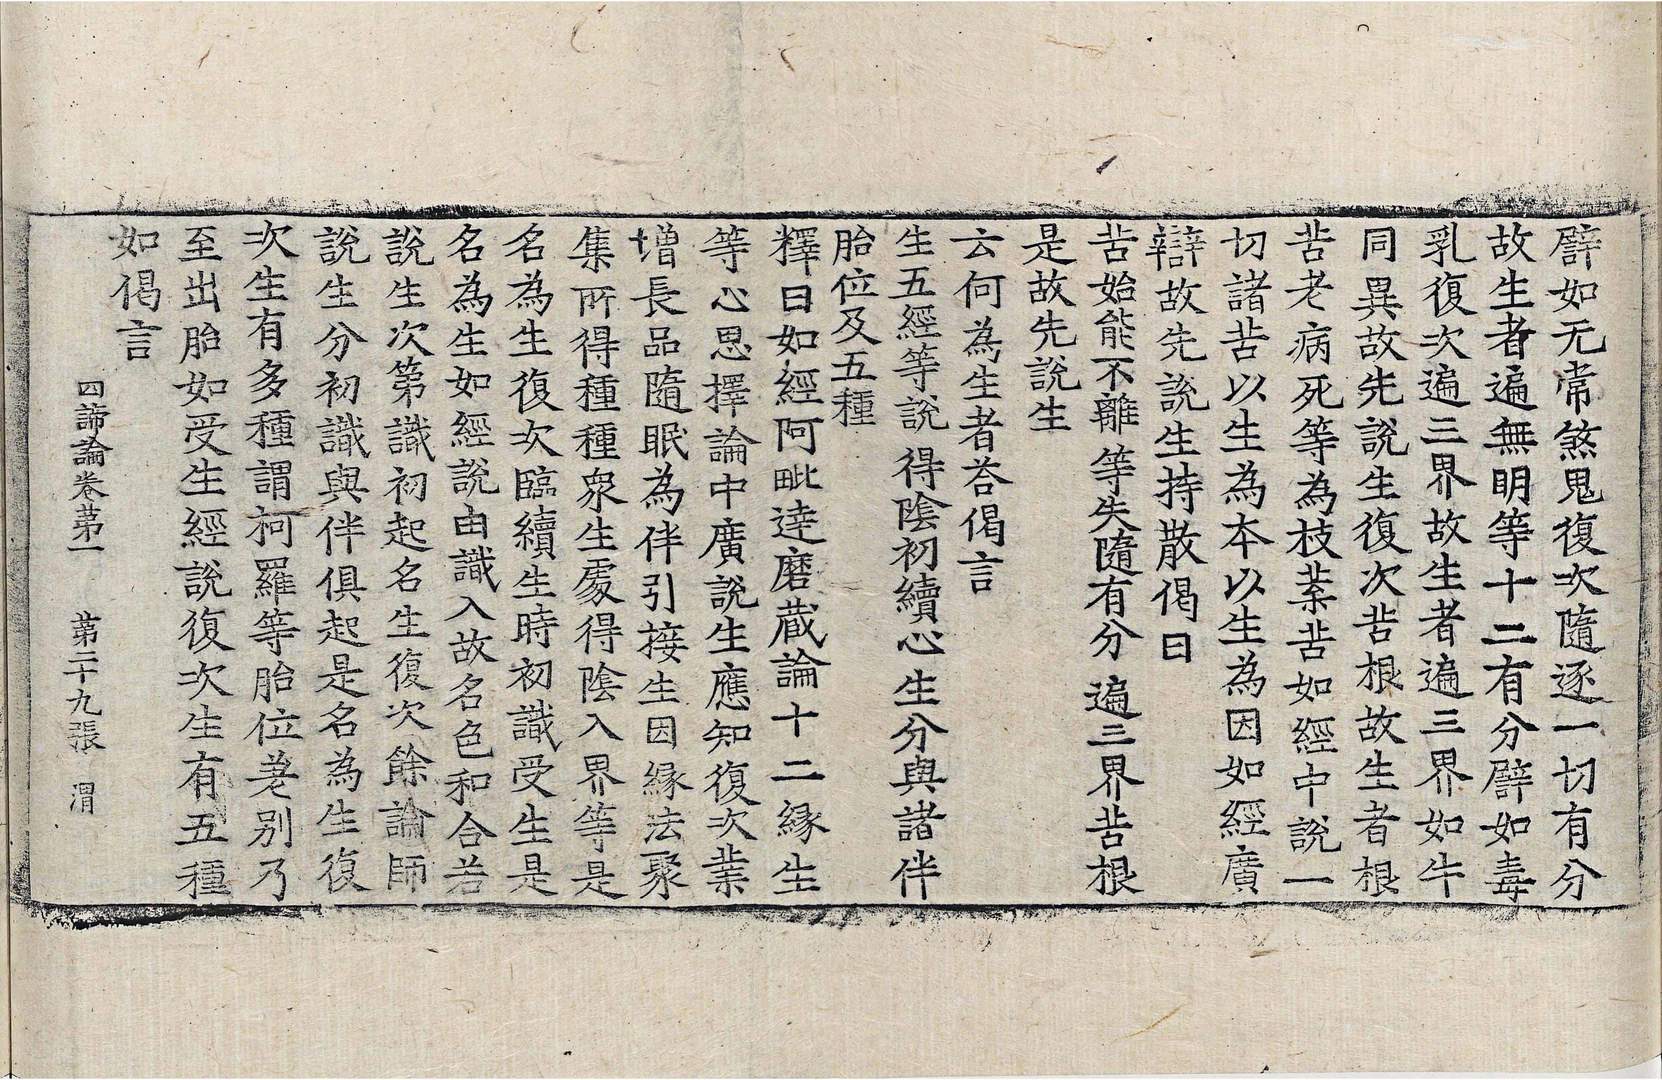 譬如无常煞鬼復次隨逐一切有分
故生者遍無明等十二有分譬如毒
乳復次遍三界故生者遍三界如牛
同異故先說生復次苦根故生者根
苦老病死等為枝葉苦如經中說一
切諸苦以生為本以生為因如經廣
辯故先說生持散偈曰
苦始能不離 等失隨有分 遍三界苦根
是故先說生
云何為生者荅偈言
生五經等說 得陰初續心 生分與諸伴
胎位及五種
釋曰如經阿毗達磨蔵論十二緣生
等心思擇論中廣說生應知復次業
增長品隨眠為伴引接生因緣法聚
集所得種種衆生處得陰入界等是
名為生復次臨續生時初識受生是
名為生如經說由識入故名色和合若
說生次第識初起名生復次餘論師
說生分初識與伴俱起是名為生復
次生有多種謂柯羅等胎位差別乃
至出胎如受生經說復次生有五種
如偈言
四諦論卷第一 第二十九張 渭